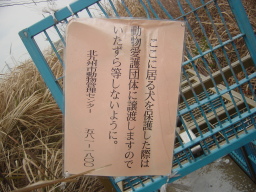 ここに居る犬を保護した際は
動物愛護団体に譲渡しますので
いたずら等しないように。
北九州市動物管理センター